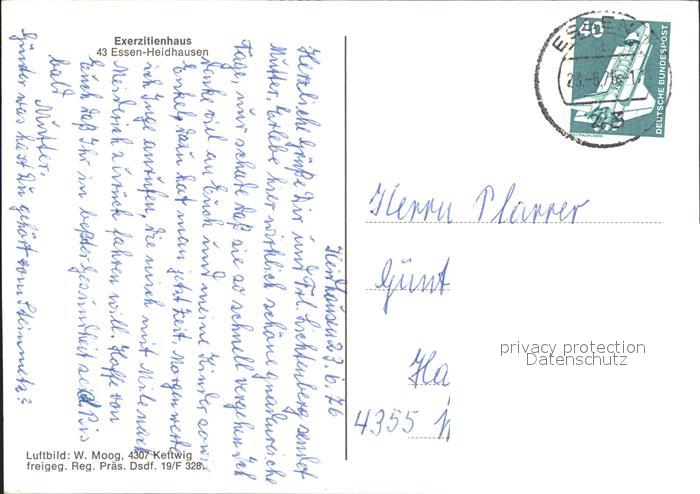 Exerzitienhaus
43 Essen-Heidhausen
Heidhausen 23.6.76
Herzliche Grüße Dir und Frl. Lichtenberg sendet
Mutter. Erlebe hier wirklich schöne gnadenreiche
Tage, nur schade daß sie so schnell vergehen. Ich
denke viel an Euch und meine Kinder sowie
Enkel, dazu hat man jetzt Zeit. Morgen werde
ich Inge anrufen, die mich mit nach
Meiderich zurück fahren will. Hoffe von
Euch daß Ihr in bester Gesundheit seid. Bis
bald
Mutter.
Günter was hast Du gehört vom Steinmetz?
Luftbild: W. Moog, 4307 Kettwig
freigeg. Reg. Präs. Dsdf. 19/F 328
ESSEN
40
DEUTSCHE BUNDESPOST
Herrn Pfarrer
Günt
Ha
4355
privacy protection
Datenschutz